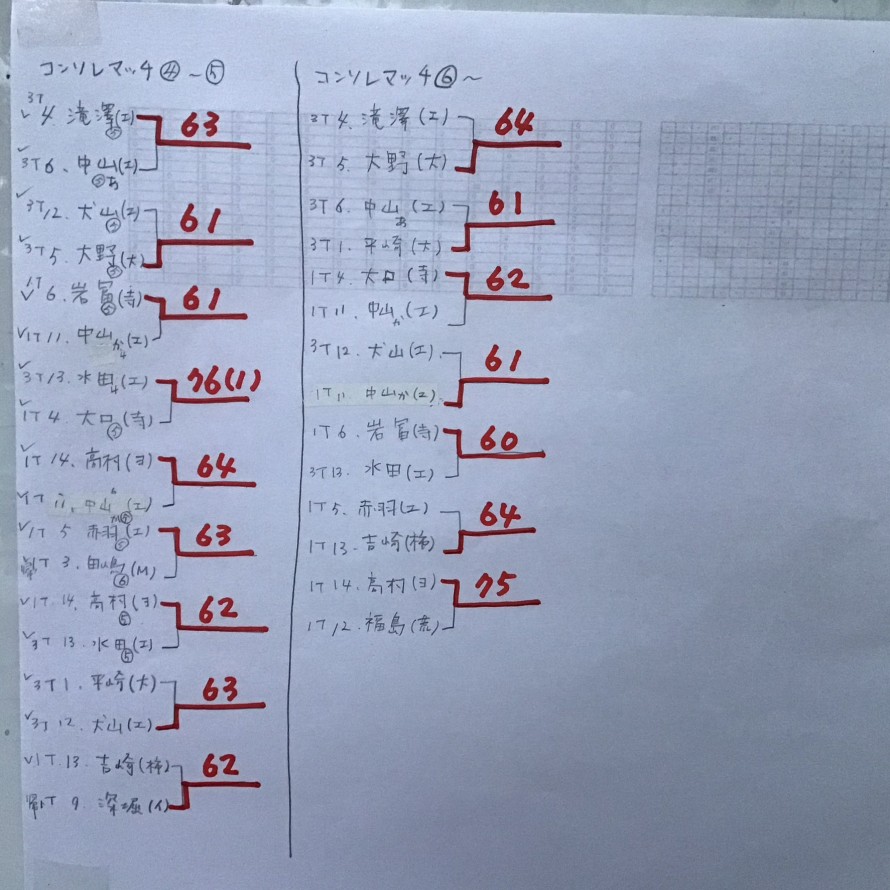 コンソレマッチ④～⑤
3T 4. 滝澤(エ)
63
3T 6. 中山(エ)
あ
3T 12. 犬山(エ)
61
3T 5. 大野(大)
1T 6. 岩冨(寺)
61
1T 11. 中山か(エ)
3T 13. 水田(エ)
76(1)
1T 4. 大口(寺)
⑤
1T 14. 高村(ヨ)
64
1T 11. 中山(エ)
1T 5. 赤羽(エ)
63
1T 3. 田嶋(M)
⑥
1T 14. 高村(ヨ)
⑤
62
3T 13. 水田(エ)
⑤
3T 1. 平崎(大)
63
3T 12. 犬山(エ)
1T 13. 吉崎(柿)
62
1T 9. 深堀(イ)
コンソレマッチ⑥～
3T 4. 滝澤(エ)
64
3T 5. 大野(大)
3T 6. 中山あ(エ)
61
3T 1. 平崎(大)
1T 4. 大口(寺)
62
1T 11. 中山か(エ)
3T 12. 犬山(エ)
61
1T 11. 中山か(エ)
1T 6. 岩冨(寺)
60
3T 13. 水田(エ)
1T 5. 赤羽(エ)
64
1T 13. 吉崎(柿)
1T 14. 高村(ヨ)
75
1T 12. 福島(荒)